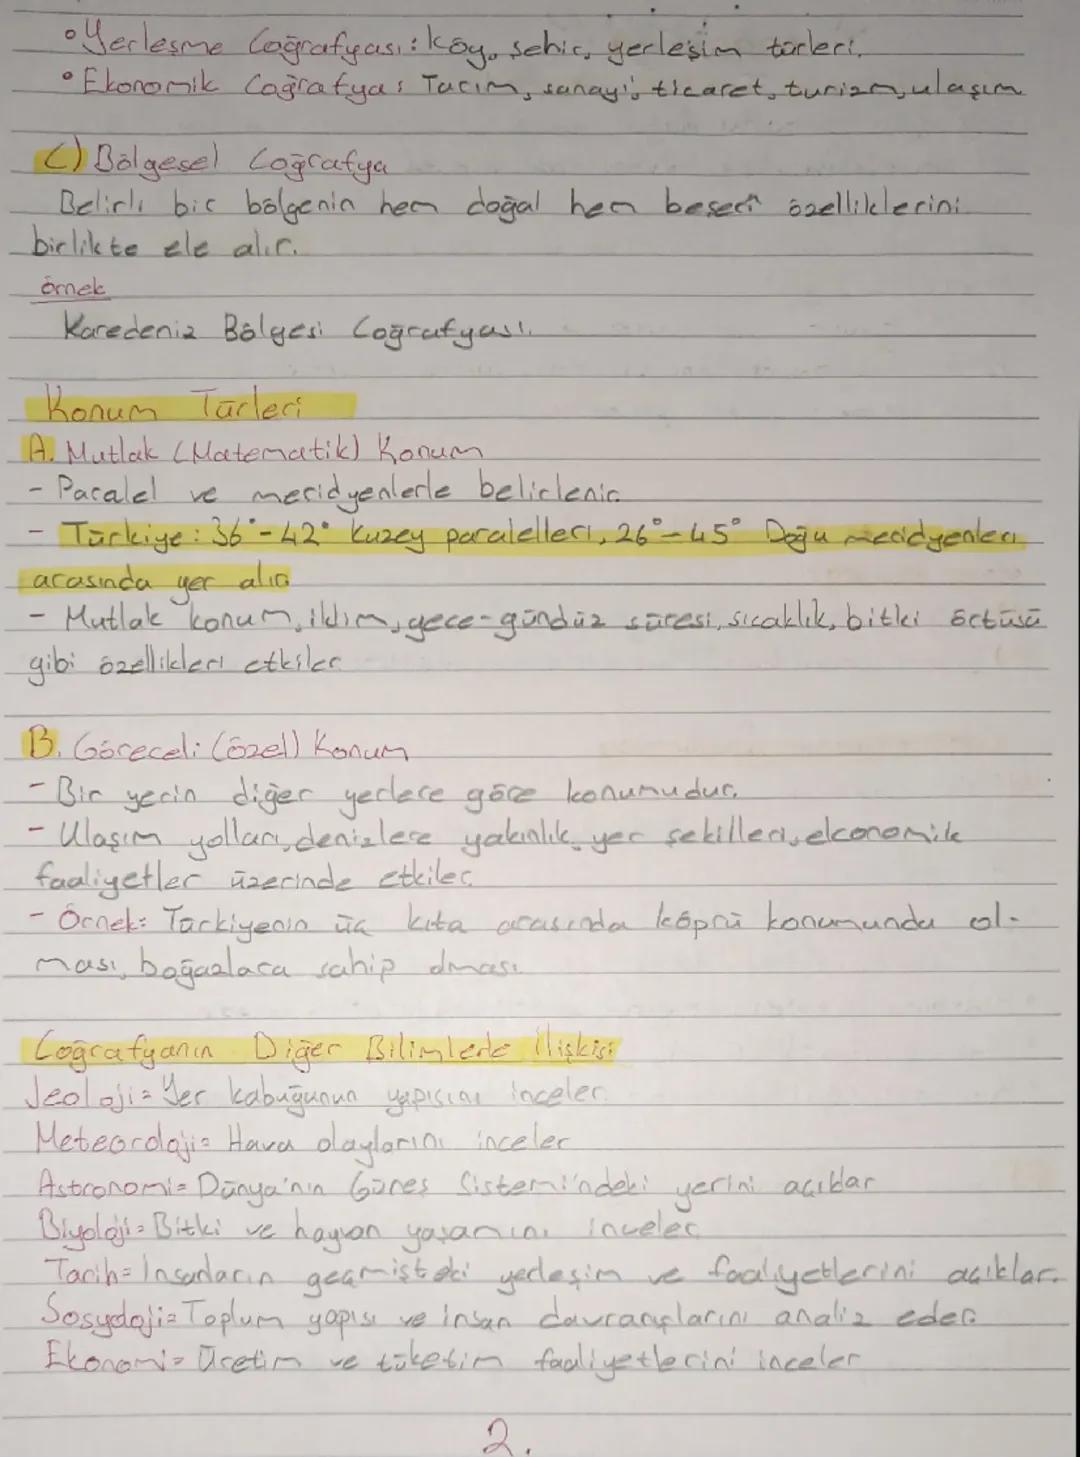 ° Yerleşme Coğrafyası: köy, şehir, yerleşim türleri.
° Ekonomik Coğrafya: Tarım, sanayi, ticaret, turizm, ulaşım
C) Bölgesel Coğrafya
Belirli bir bölgenin hem doğal hem beşerî özelliklerini
birlikte ele alır.
örnek
Karedeniz Bölgesi Coğrafyası.
Konum Türleri
A. Mutlak (Matematik) Konum
- Paralel ve meridyenlerle belirlenir.
- Türkiye: 36° - 42° Kuzey paralelleri, 26° - 45° Doğu meridyenleri
arasında yer alır
- Mutlak konum, iklim, gece-gündüz süresi, sıcaklık, bitki örtüsü
gibi özellikleri etkiler
B. Göreceli (özel) Konum
- Bir yerin diğer yerlere göre konumudur.
- Ulaşım yolları, denizlere yakınlık, yer şekilleri, ekonomik
faaliyetler üzerinde etkiler.
- Örnek: Türkiyenin üç kıta arasında köprü konumunda ol-
ması, boğazlara sahip olması
Coğrafyanın Diğer Bilimlerle İlişkisi
Jeoloji= Yer kabuğunun yapısını inceler.
Meteoroloji= Hava olaylarını inceler
Astronomi= Dünya'nın Güneş Sistemi'ndeki yerini açıklar
Biyoloji= Bitki ve hayvan yaşamını inceler
Tarih= İnsanların geçmişteki yerleşim ve faaliyetlerini açıklar.
Sosyoloji= Toplum yapısı ve insan davranışlarını analiz eder.
Ekonomi= Üretim ve tüketim faaliyetlerini inceler
2.